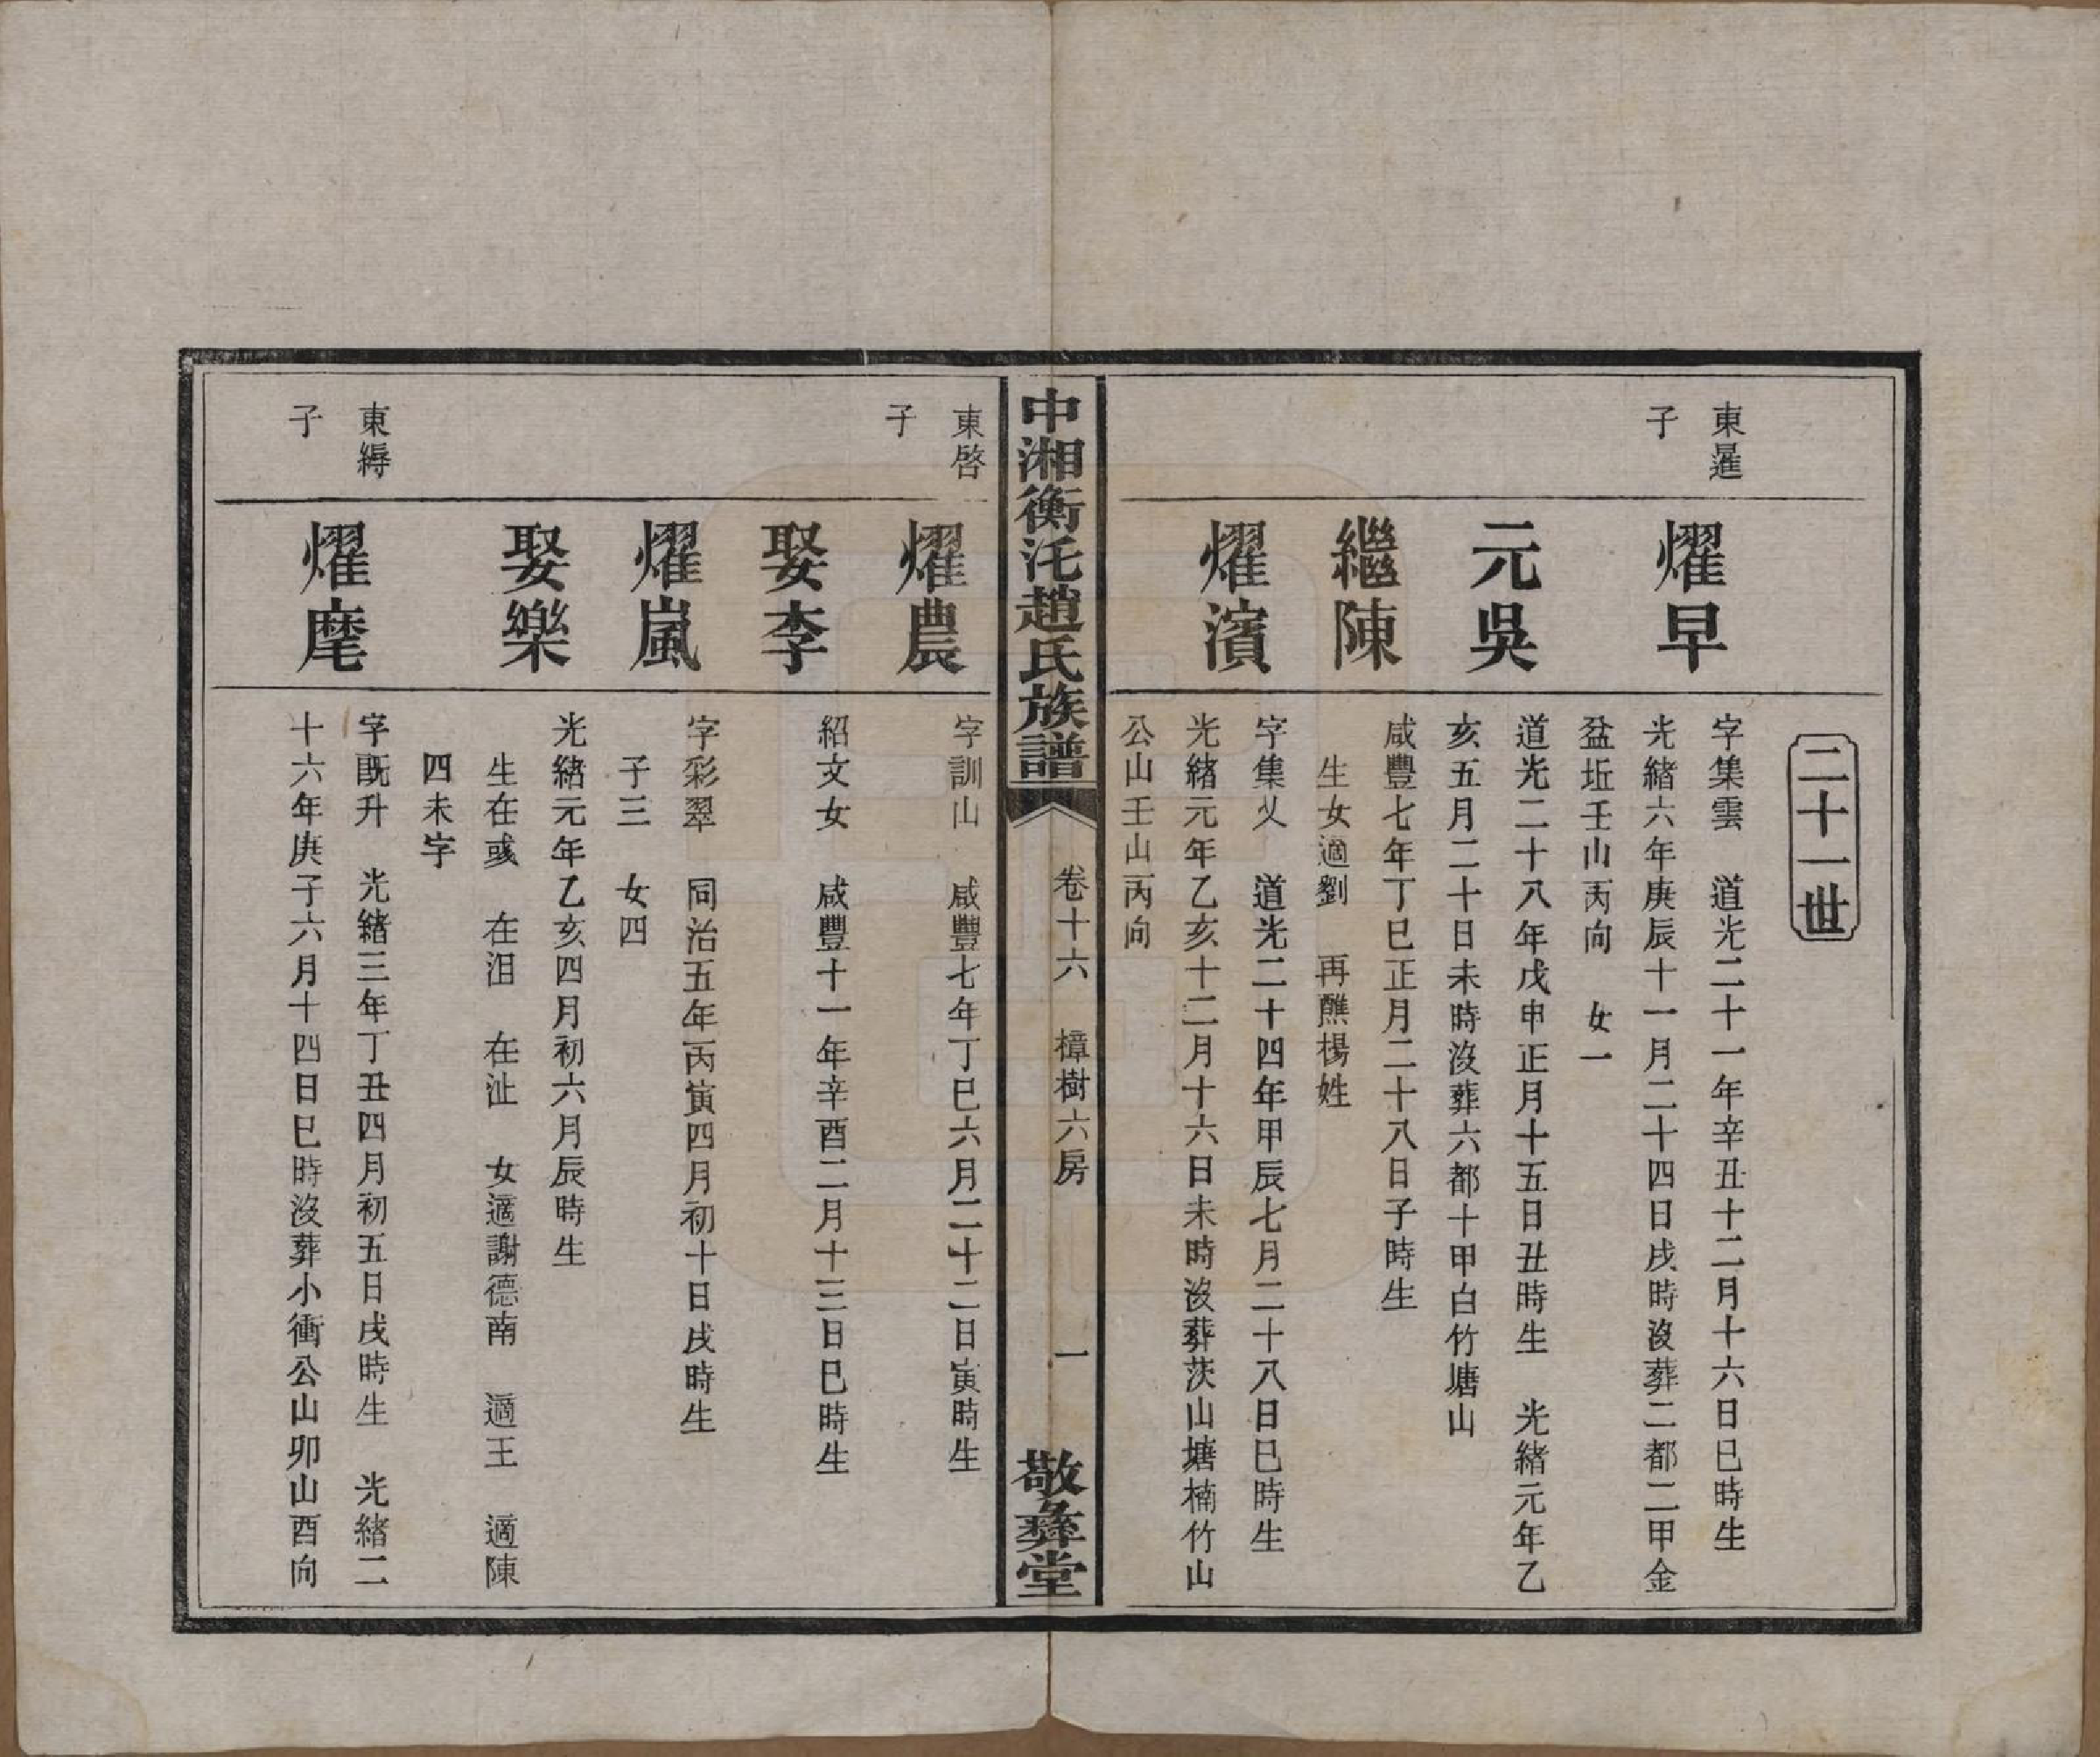 二十一世
東暹子
燿早
字集雲　道光二十一年辛丑十二月十六日巳時生
光緒六年庚辰十一月二十四日戌時沒葬二都二甲金
盆坵壬山丙向　女一
元吳
道光二十八年戊申正月十五日丑時生　光緒元年乙
亥五月二十日未時沒葬六都十甲白竹塘山
繼陳
咸豐七年丁巳正月二十八日子時生
生女適劉　再醮楊姓
燿濱
字集乂　道光二十四年甲辰七月二十八日巳時生
光緒元年乙亥十二月十六日未時沒葬茨山塘楠竹山
公山壬山丙向
中湘衡汑趙氏族譜
卷十六　樟樹六房
一
敬彝堂
東啓子
燿農
字訓山　咸豐七年丁巳六月二十二日寅時生
娶李
紹文女　咸豐十一年辛酉二月十三日巳時生
燿嵐
字彩翠　同治五年丙寅四月初十日戌時生
子三　女四
娶樂
光緒元年乙亥四月初六月辰時生
生在彧　在泪　在沚　女適謝德南　適王　適陳
四未字
東縟子
燿麾
字旣升　光緒三年丁丑四月初五日戌時生　光緒二
十六年庚子六月十四日巳時沒葬小衝公山卯山酉向